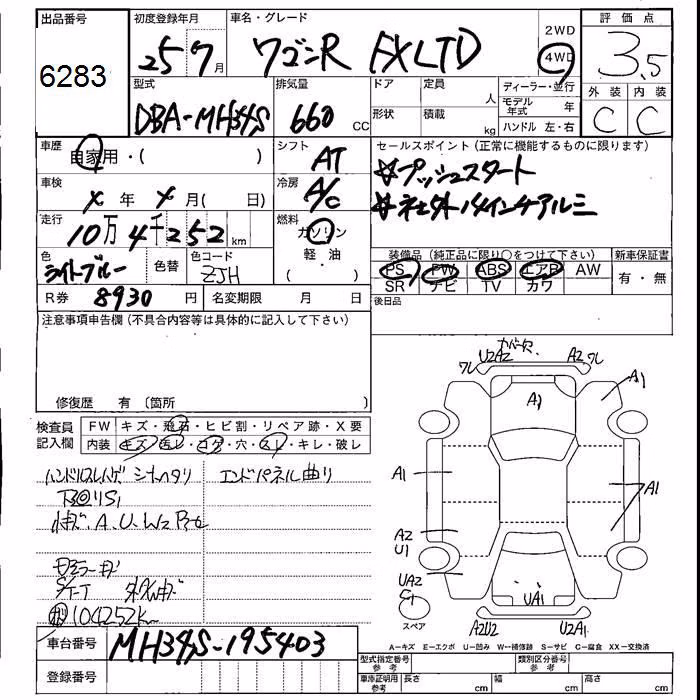 出品番号 初度登録年月 車名・グレード 評価点
6283 25 7月 ワゴンR FX LTD 2WD 4WD 3.5
型式 排気量 ドア 定員 人 ディーラー・並行 外装 内装
DBA-MH34S 660 CC 形状 積載 kg モデル年式 年 C C
ハンドル 左・右
車歴 自家用・( ) シフト AT セールスポイント(正常に機能するものに限ります)
☆プッシュスタート
車検 年 月( 日) 冷房 A/C ☆社外14インチアルミ
走行 10万4千252km 燃料 ガソリン 軽油 ( )
装備品(純正品に限り○をつけて下さい) 新車保証書
色 ライトブルー 色替 色コード ZJH PS PW ABS エアB AW 有・無
SR ナビ TV カワ
R券 8930円 名変期限 月 日 後日品
注意事項申告欄(不具合内容等は具体的に記入して下さい)
修復歴 有 〔箇所 〕
検査員記入欄 FW キズ・飛石・ヒビ割・リペア跡・X要
内装 キズ・汚レ・コゲ・穴・スレ・キレ・破レ
エンドパネル曲り
A.U.W2
104252k
車台番号 MH34S-195403
登録番号
カバー欠
ワレ U2A2 A2 ワレ
A1 A1
A1 A1
A2
U1
UA2
C1 UA1
スペア A2U2 U2A1
A-キズ E-エクボ U-凹み W-補修跡 S-サビ C-腐食 XX-交換済
型式指定番号 参考 類別区分番号 参考
車庫証明用 参考 長さ cm 幅 cm 高さ cm